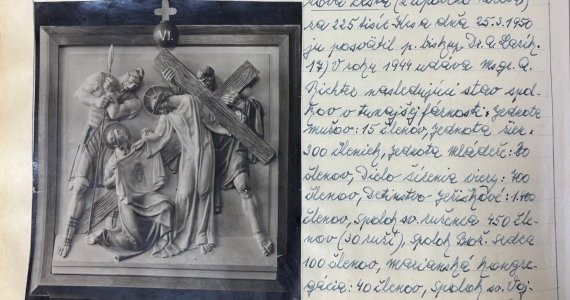 VI.
za 225 tisíc Kčs a dňa 25.3.1950
ju posvätil p. biskup Dr. A.
17) V roku 1944 udáva msgr. A.
Richter nasledujúci stav spol-
kov v tunajšej farnosti: Jednota
mužov: 15 členov, jednota žien:
300 členiek, jednota mládeže: 80
členov, Dielo šírenia viery: 700
členov, Detinstvo Ježišovo: 1.400
členov, Spolok sv. ruženca 450 čle-
nov (30 ruží), Spolok Bož. Srdca
100 členov, Marianská kongre-
gácia: 40 členov, Spolok sv. Voj-